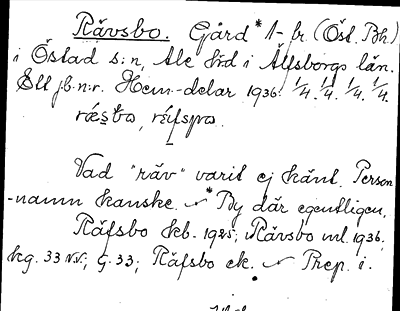 Rävsbo. Gård * 1-br. (Öst. Bh.)
i Östad s:n, Ale h:d i Älfsborgs län.
Ell. j.b.n:r. Hem.-delar 1936. 1/4. 1/4. 1/4. 1/4.
ræsbo, réfspo.
Vad "räv" varit ej känt. Person
-namn kanske. * By där egentligen,
Räfsbo kb. 1925; Rävsbo ml. 1936;
kg. 33 NV, G. 33; Räfsbo ek. Prep. i.